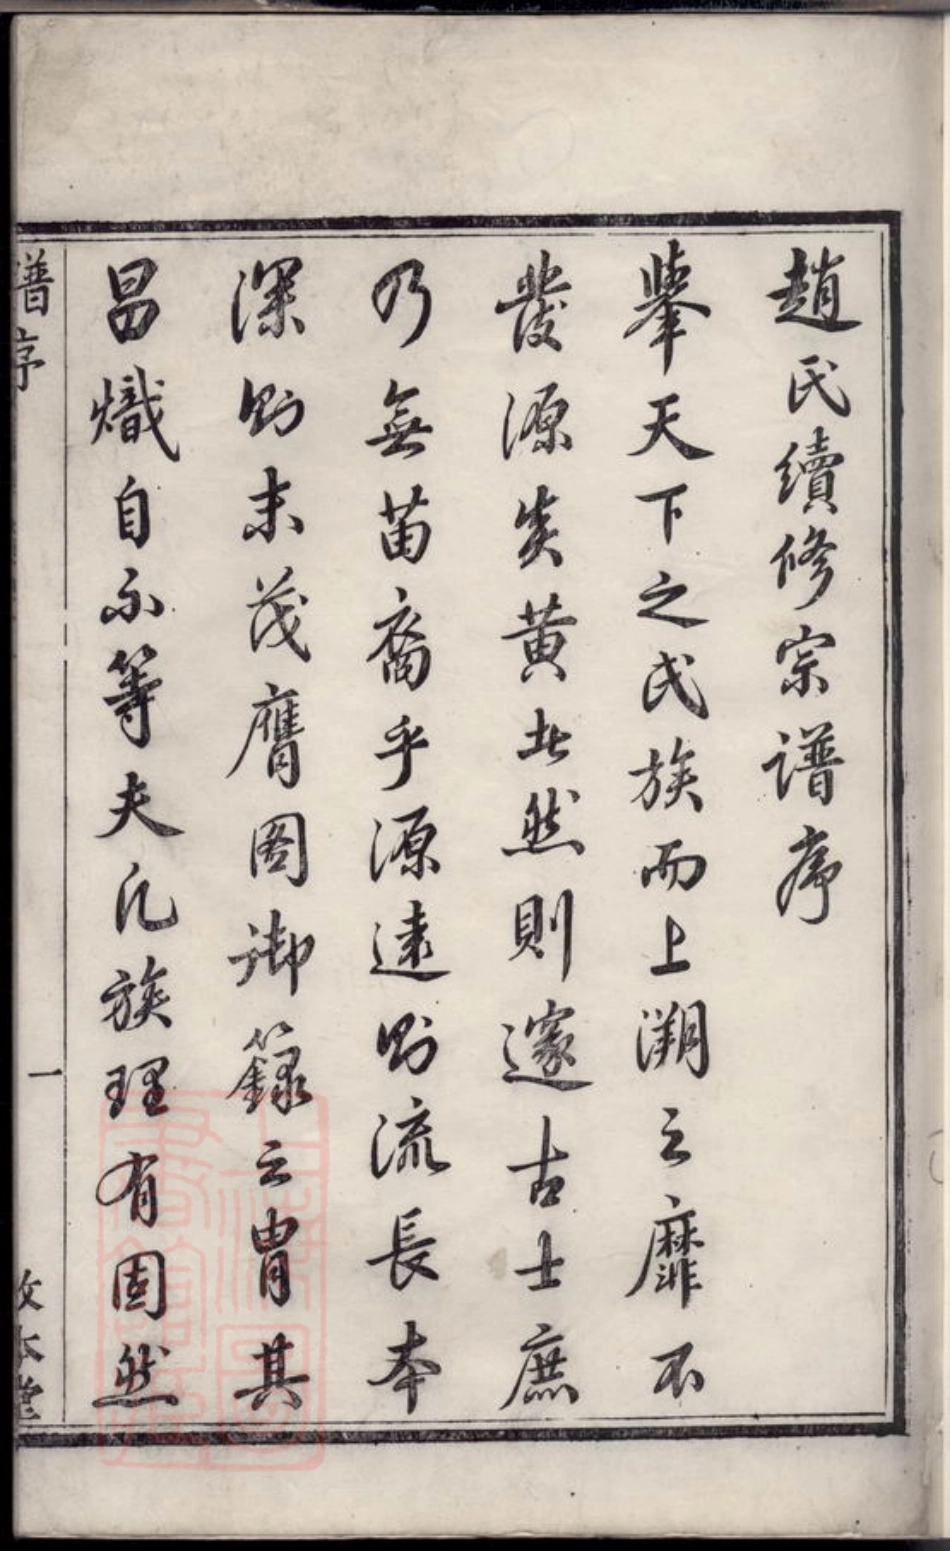 趙氏續修宗譜序
舉天下之氏族而上溯之靡不
發源炎黃此然則邃古士庶
乃無苗裔乎源遠則流長本
深則末茂膺图御籙之胄其
昌熾自不等夫凡族理有固然
譜序
一
敦本堂